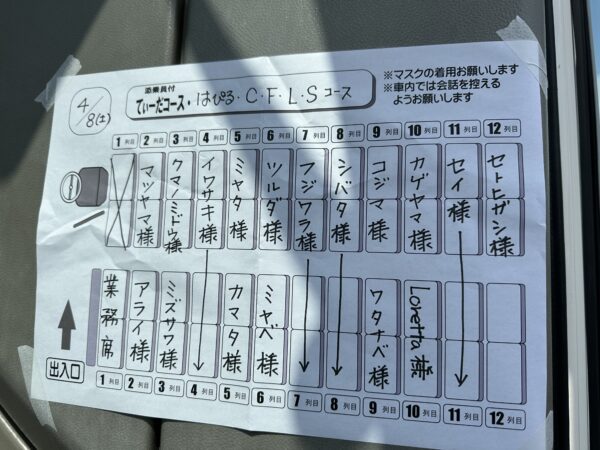 4/8(土)
添乗員付
てぃーだコース・はぴる・C・F・L・Sコース
※マスクの着用お願いします
※車内では会話を控える
ようお願いします
1列目 2列目 3列目 4列目 5列目 6列目 7列目 8列目 9列目 10列目 11列目 12列目
マツヤマ様
クマノミドウ様
イワサキ様
ミヤタ様
ツルダ様
フジワラ様
シバタ様
コジマ様
カゲヤマ様
セイ様
セトヒガシ様
業務席
アライ様
ミズサワ様
カマタ様
ミヤベ様
ワタナベ様
Loretta様
出入口
1列目 2列目 3列目 4列目 5列目 6列目 7列目 8列目 9列目 10列目 11列目 12列目